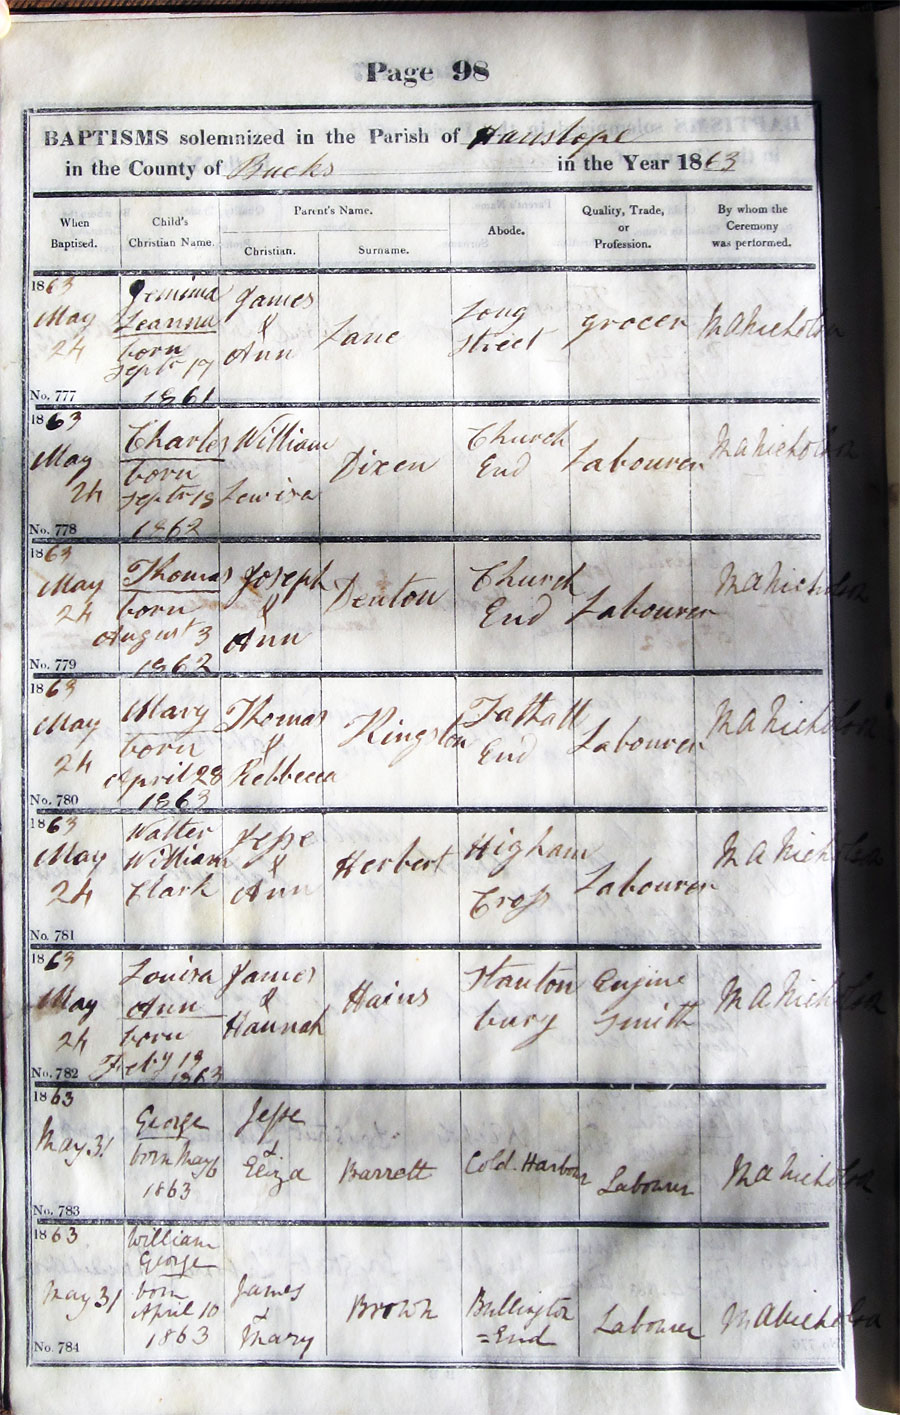 Page 98
BAPTISMS solemnized in the Parish of Hanslope
in the County of Bucks in the Year 1863
When Baptised.
Child's Christian Name.
Parent's Name.
Christian.
Surname.
Abode.
Quality, Trade, or Profession.
By whom the Ceremony was performed.
1863
May
24
No. 777
Jemima
Leanna
born
Septr 17
1861
James
&
Ann
Lane
Long
Street
grocer
M A Nicholson
1863
May
24
No. 778
Charles
born
Septr 18
1862
William
Lewisa
Dixen
Church
End
Labourer
M A Nicholson
1863
May
24
No. 779
Thomas
born
August 3
1862
Joseph
&
Ann
Denton
Church
End
Labourer
M A Nicholson
1863
May
24
No. 780
Mary
born
April 28
1863
Thomas
&
Rebbecca
Kingston
Tathall
End
Labourer
M A Nicholson
1863
May
24
No. 781
Walter
William
Clark
Jesse
&
Ann
Herbert
Higham
Cross
Labourer
M A Nicholson
1863
May
24
No. 782
Louisa
Ann
born
Feby 19
1863
James
&
Hannah
Hains
Stanton
bury
Engine
Smith
M A Nicholson
1863
May 31
No. 783
George
born May 6
1863
Jesse
&
Eliza
Barrett
Cold-Harbour
Labourer
M A Nicholson
1863
May 31
No. 784
William
George
born
April 10
1863
James
&
Mary
Brown
Bullington
=End
Labourer
M A Nicholson